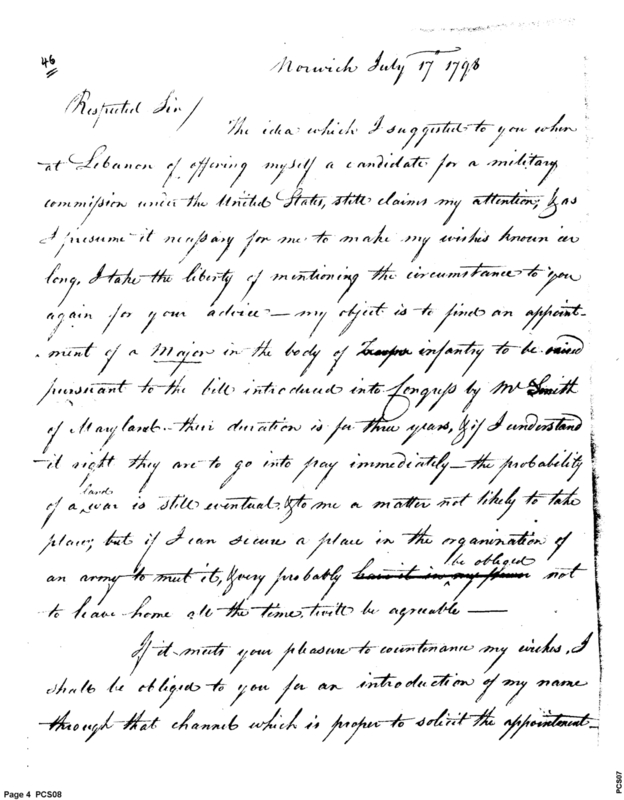 46
Norwich July 17th 1798
Respected Sir /
The idea which I suggested to you when
at Lebanon of offering myself a candidate for a military
commission under the United States, still claims my attention; & as
I presume it necessary for me to make my wishes known 'er
long, I take the liberty of mentioning the circumstance to you
again for your advice — my object is to find an appoint-
-ment of a Major in the body of Troops infantry to be raised
pursuant to the bill introduced into Congress by Mr Smith
of Maryland — their duration is for three years, & if I understand
it right they are to go into pay immediately — the probability
of a land war is still eventual & to me a matter not likely to take
place; but if I can secure a place in the organization of
an army to meet it, & very probably have it in my power be obliged not
to leave home all the time, twill be agreeable —
If it meets your pleasure to countenance my wishes, I
shall be obliged to you for an introduction of my name
through that channel which is proper to solicit the appointment —
Page 4 PCS08
PCS07